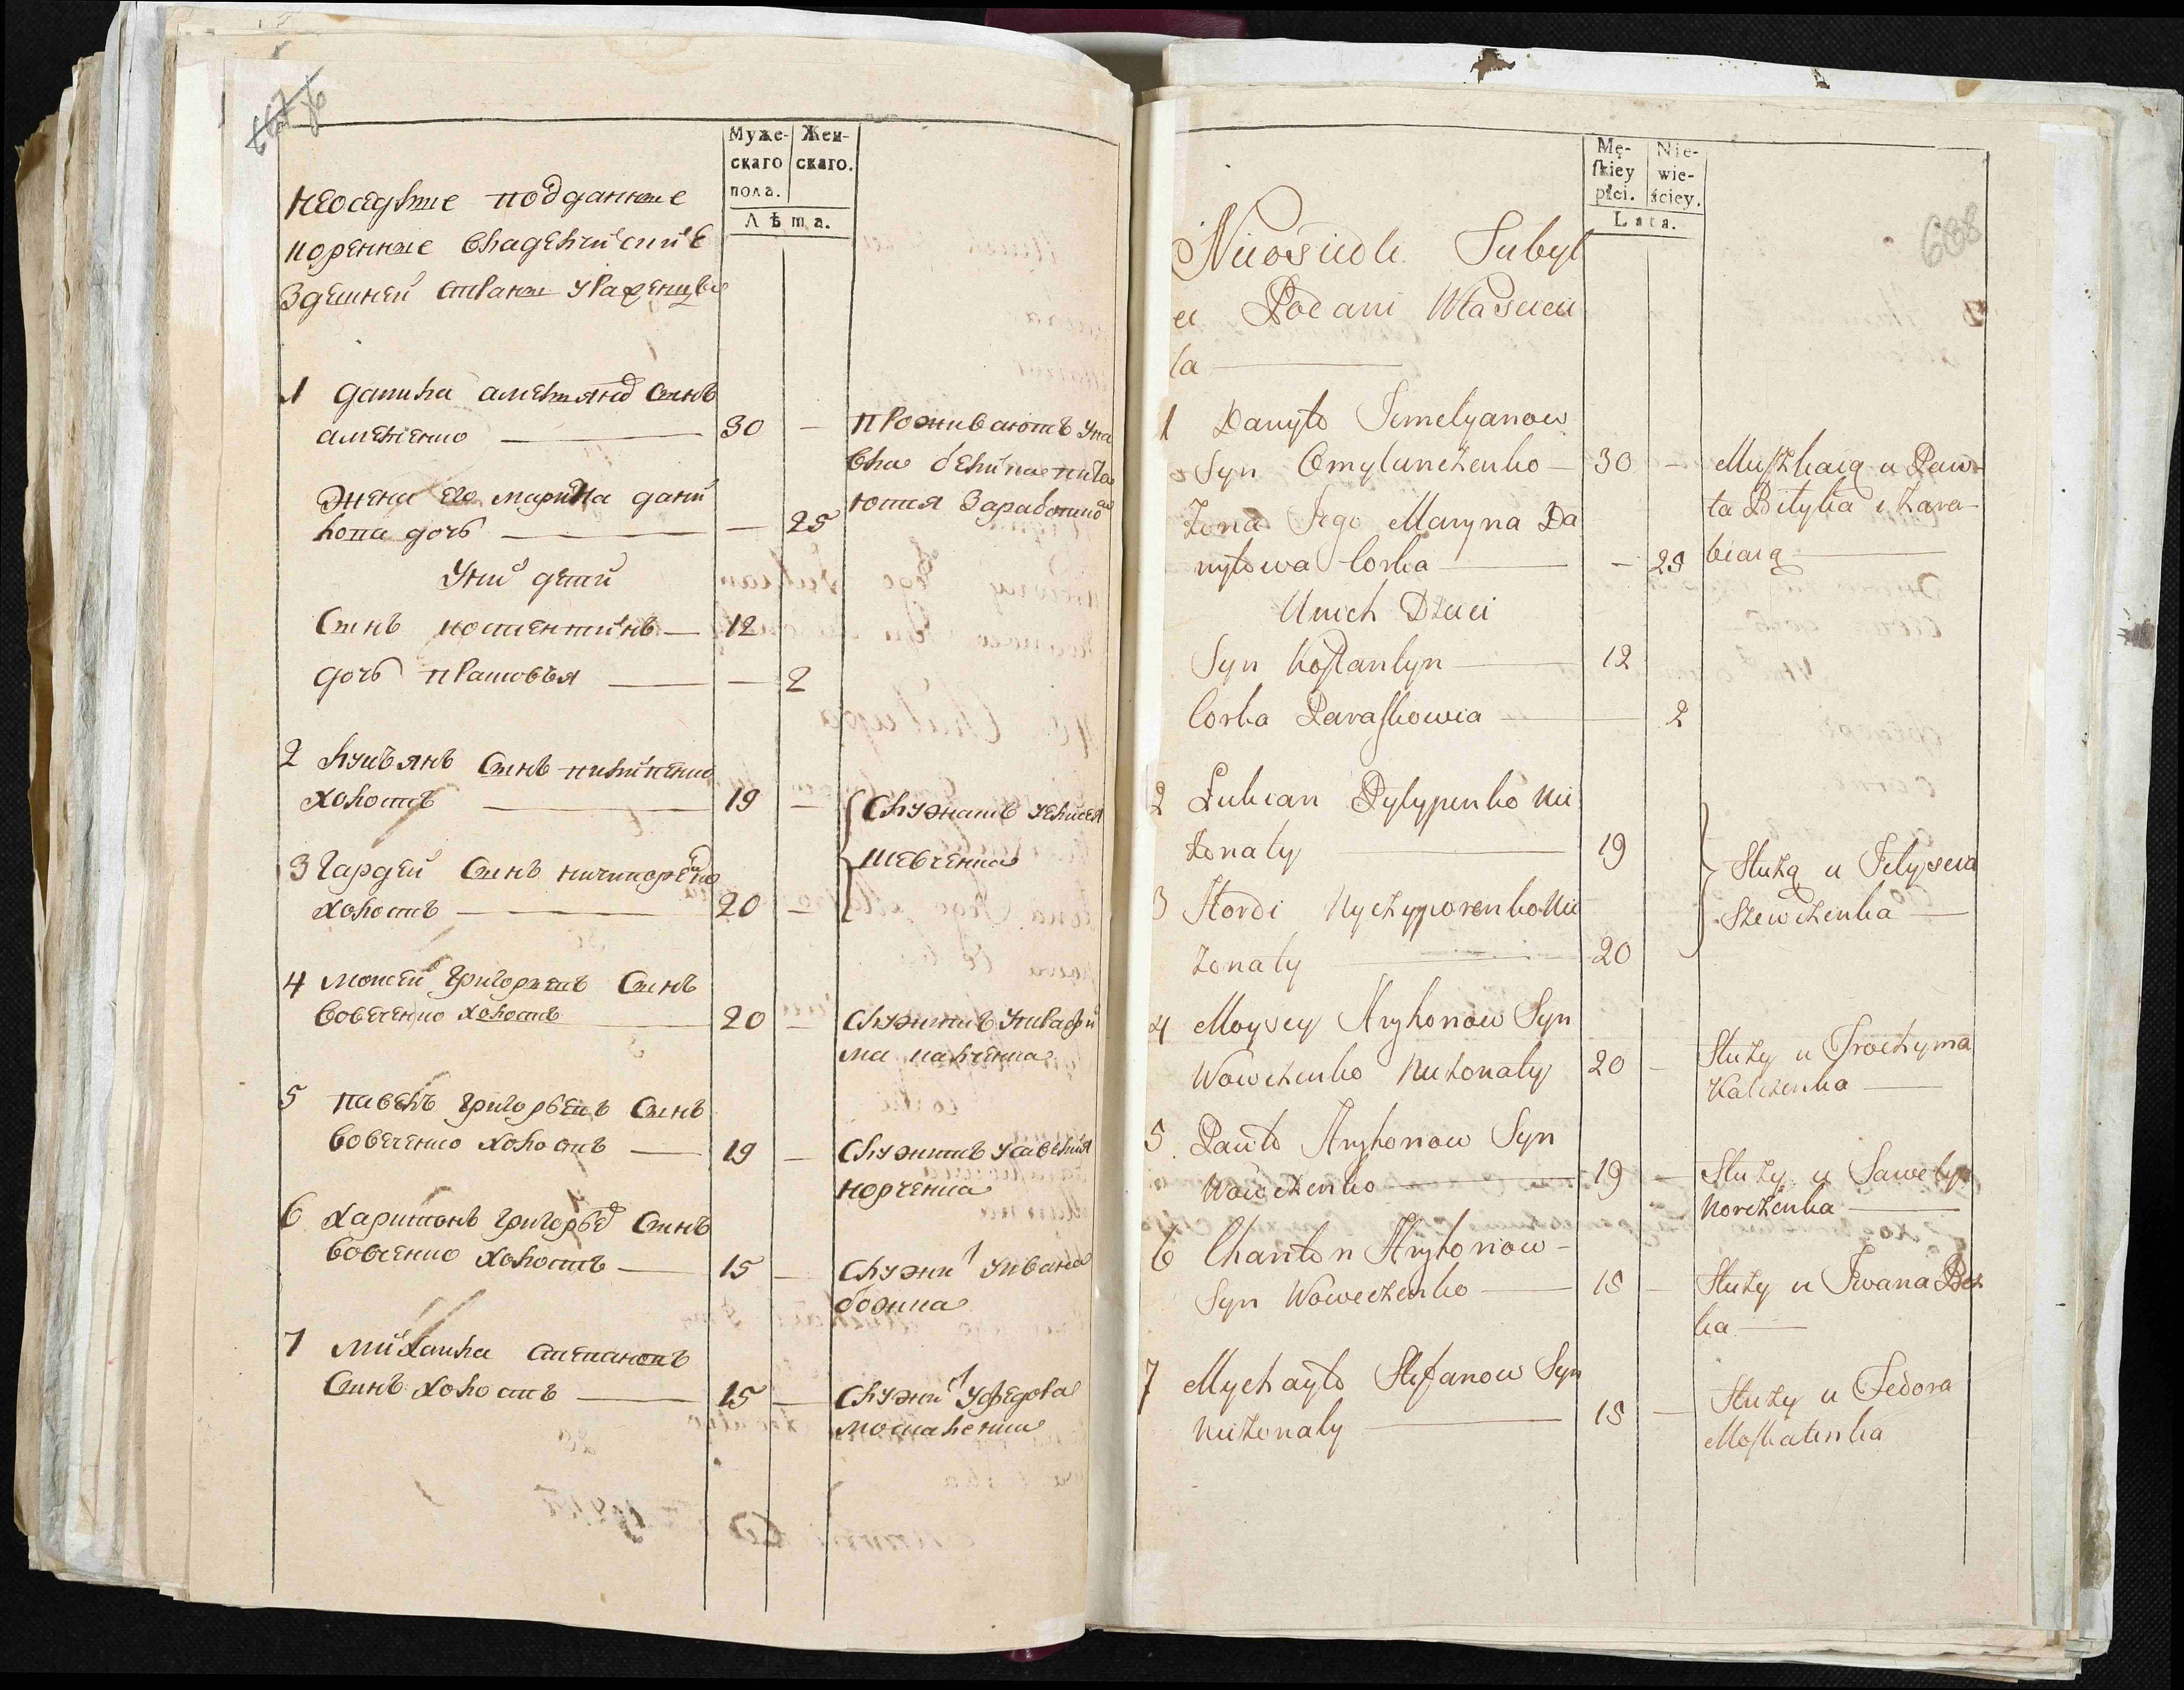 Муже-
скаго
пола.
Жен-
скаго.
Лѣта.
неоседлые подданные
коренные владелчискиѣ
Здешней страны уроженцы
1 данила
30 —
проживаютъ упа
Жена его марина дани
лова дочь — — 25
Унй дети
Сынъ костентинъ — 12
дочь прасковья — — 2
2 лукъянъ Сынъ пилипенко
холостъ — 19 —
Служатъ уелисея
шевченка
3 гардей Сынъ ничипоренко
холостъ — 20 —
4 мосей григорьевъ Сынъ
вовченко холостъ — 20 —
Служитъ
калченка
5 павелъ григорьевъ Сынъ
вовченко холостъ — 19 —
Служитъ усавелия
норченка
6 харитонъ григорьевъ Сынъ
вовченко холостъ — 15 —
Служи уивана
божка
7 михаила степановъ
Сынъ холостъ — 15 —
Служи уфедора
москаленка
Mę-
ſkiey
płci.
Nie-
wie-
ściey.
Lata.
668
Nieosiedli
Podani Właściciela
la —
1 Danyło Jemelyanow
Syn Omylianczenko — 30 —
Mięszkaią u Paw-
ła Bityka i zara-
biaią —
Zona Jego Maryna Da
nyłowa Corka — — 25
Unich Dzieci
Syn Koſtantyn — 12
Corka Paraſkowia — 2
2 Łukian Pylypenko Nie
żonaty — 19
Służą u Jelyseia
Szewczenka —
3 Hordi Nyczyporenko Nie
żonaty — 20
4 Moysey Hryhorow Syn
Wowczenko Nieżonaty 20 —
Służy u Trochyma
Kalczenka —
5 Pawło Hryhorow Syn
Wowczenko — 19 —
Służy u Sawelya
Norczenka —
6 Chariton Hryhorow —
Syn Wowczenko — 15 —
Służy u Iwana Boż
ka —
7 Mychayło Stefanow Syn
Nieżonaty — 15 —
Służy u Fedora
Moſkalenka